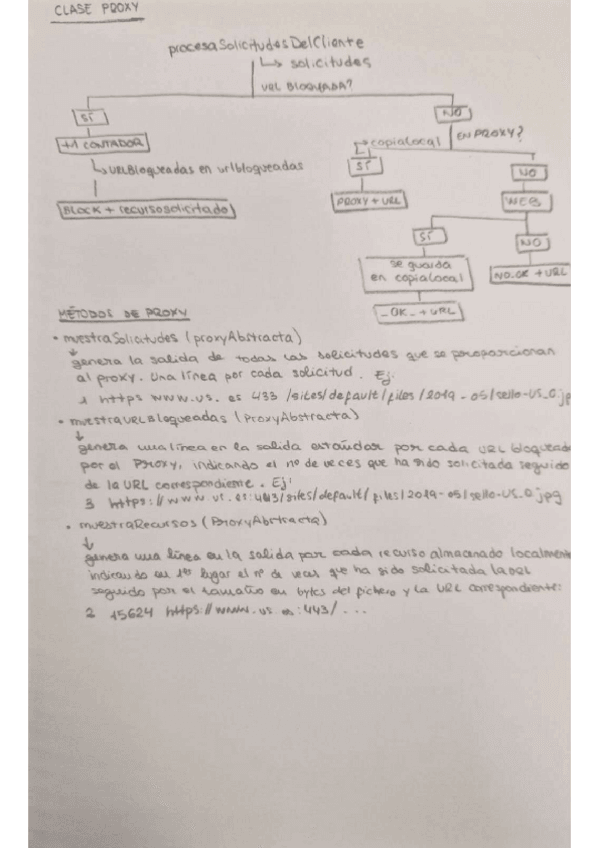 CLASE PROXY
procesaSolicitudesDelCliente
↳ solicitudes
URL BLOQUEADA?
SÍ
NO
+1 CONTADOR
copiaLocal
EN PROXY?
↳ URLBloqueadas en urlbloqueadas
SÍ
NO
BLOCK + recursosolicitado
PROXY + URL
WEB
SÍ
NO
se guarda
en copiaLocal
NO.OK + URL
_OK_ + URL
MÉTODOS DE PROXY
• muestraSolicitudes (proxyAbstracta)
genera la salida de todas las solicitudes que se poroporcionan
al proxy. Una línea por cada solicitud. Ej:
1 https www.us.es 433 /sites/default/files/2019-05/sello-US_0.jp
• muestraURLBloqueadas (ProxyAbstracta)
↓
genera una línea en la salida estándar por cada URL bloqueada
por el Proxy, indicando el nº de veces que ha sido solicitada seguido
de la URL correspondiente. Ej:
3 https://www.us.es:443/sites/default/files/2019-05/sello-US_0.jpg
• muestraRecursos (ProxyAbstracta)
↓
genera una línea en la salida por cada recurso almacenado localment
indicando en 1er lugar el nº de veces que ha sido solicitada la URL
seguido por el tamaño en bytes del fichero y la URL correspondiente:
2 15624 https://www.us.es:443/...